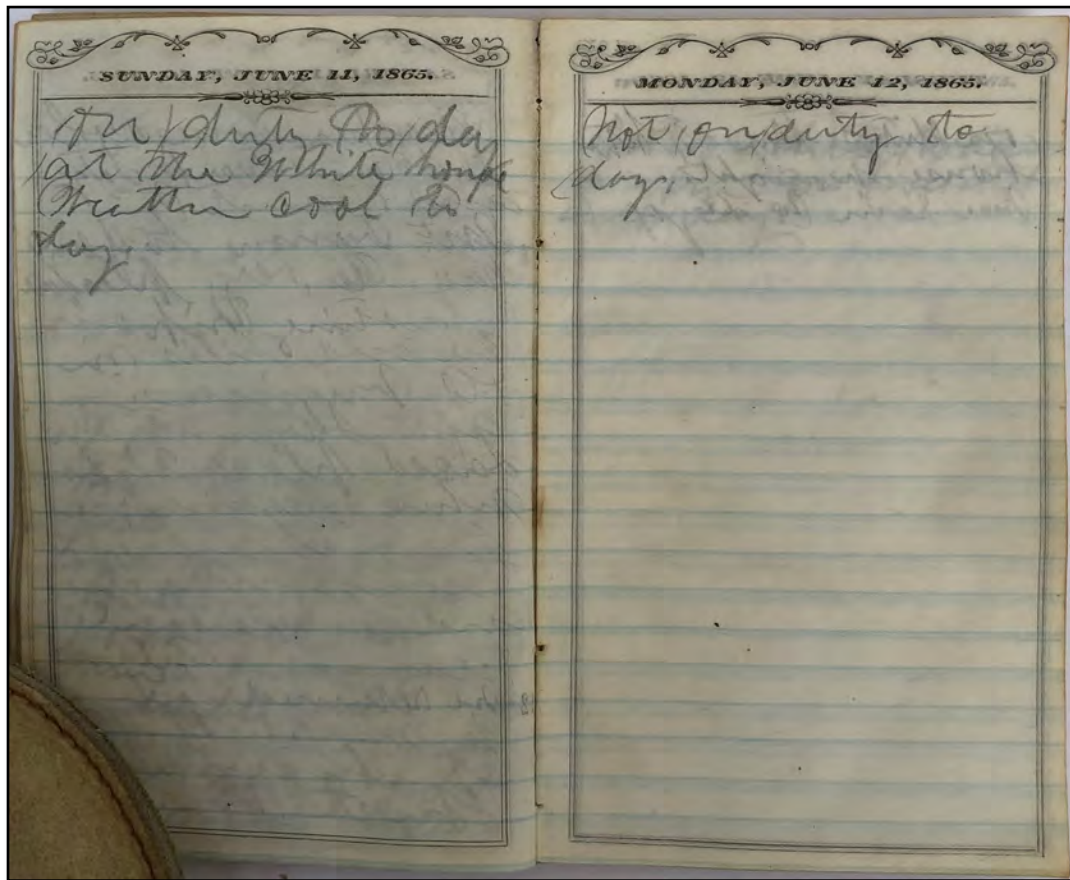 SUNDAY, JUNE 11, 1865.
On duty to day
at the White house
Weather cool to
day
MONDAY, JUNE 12, 1865.
Not on duty to
day